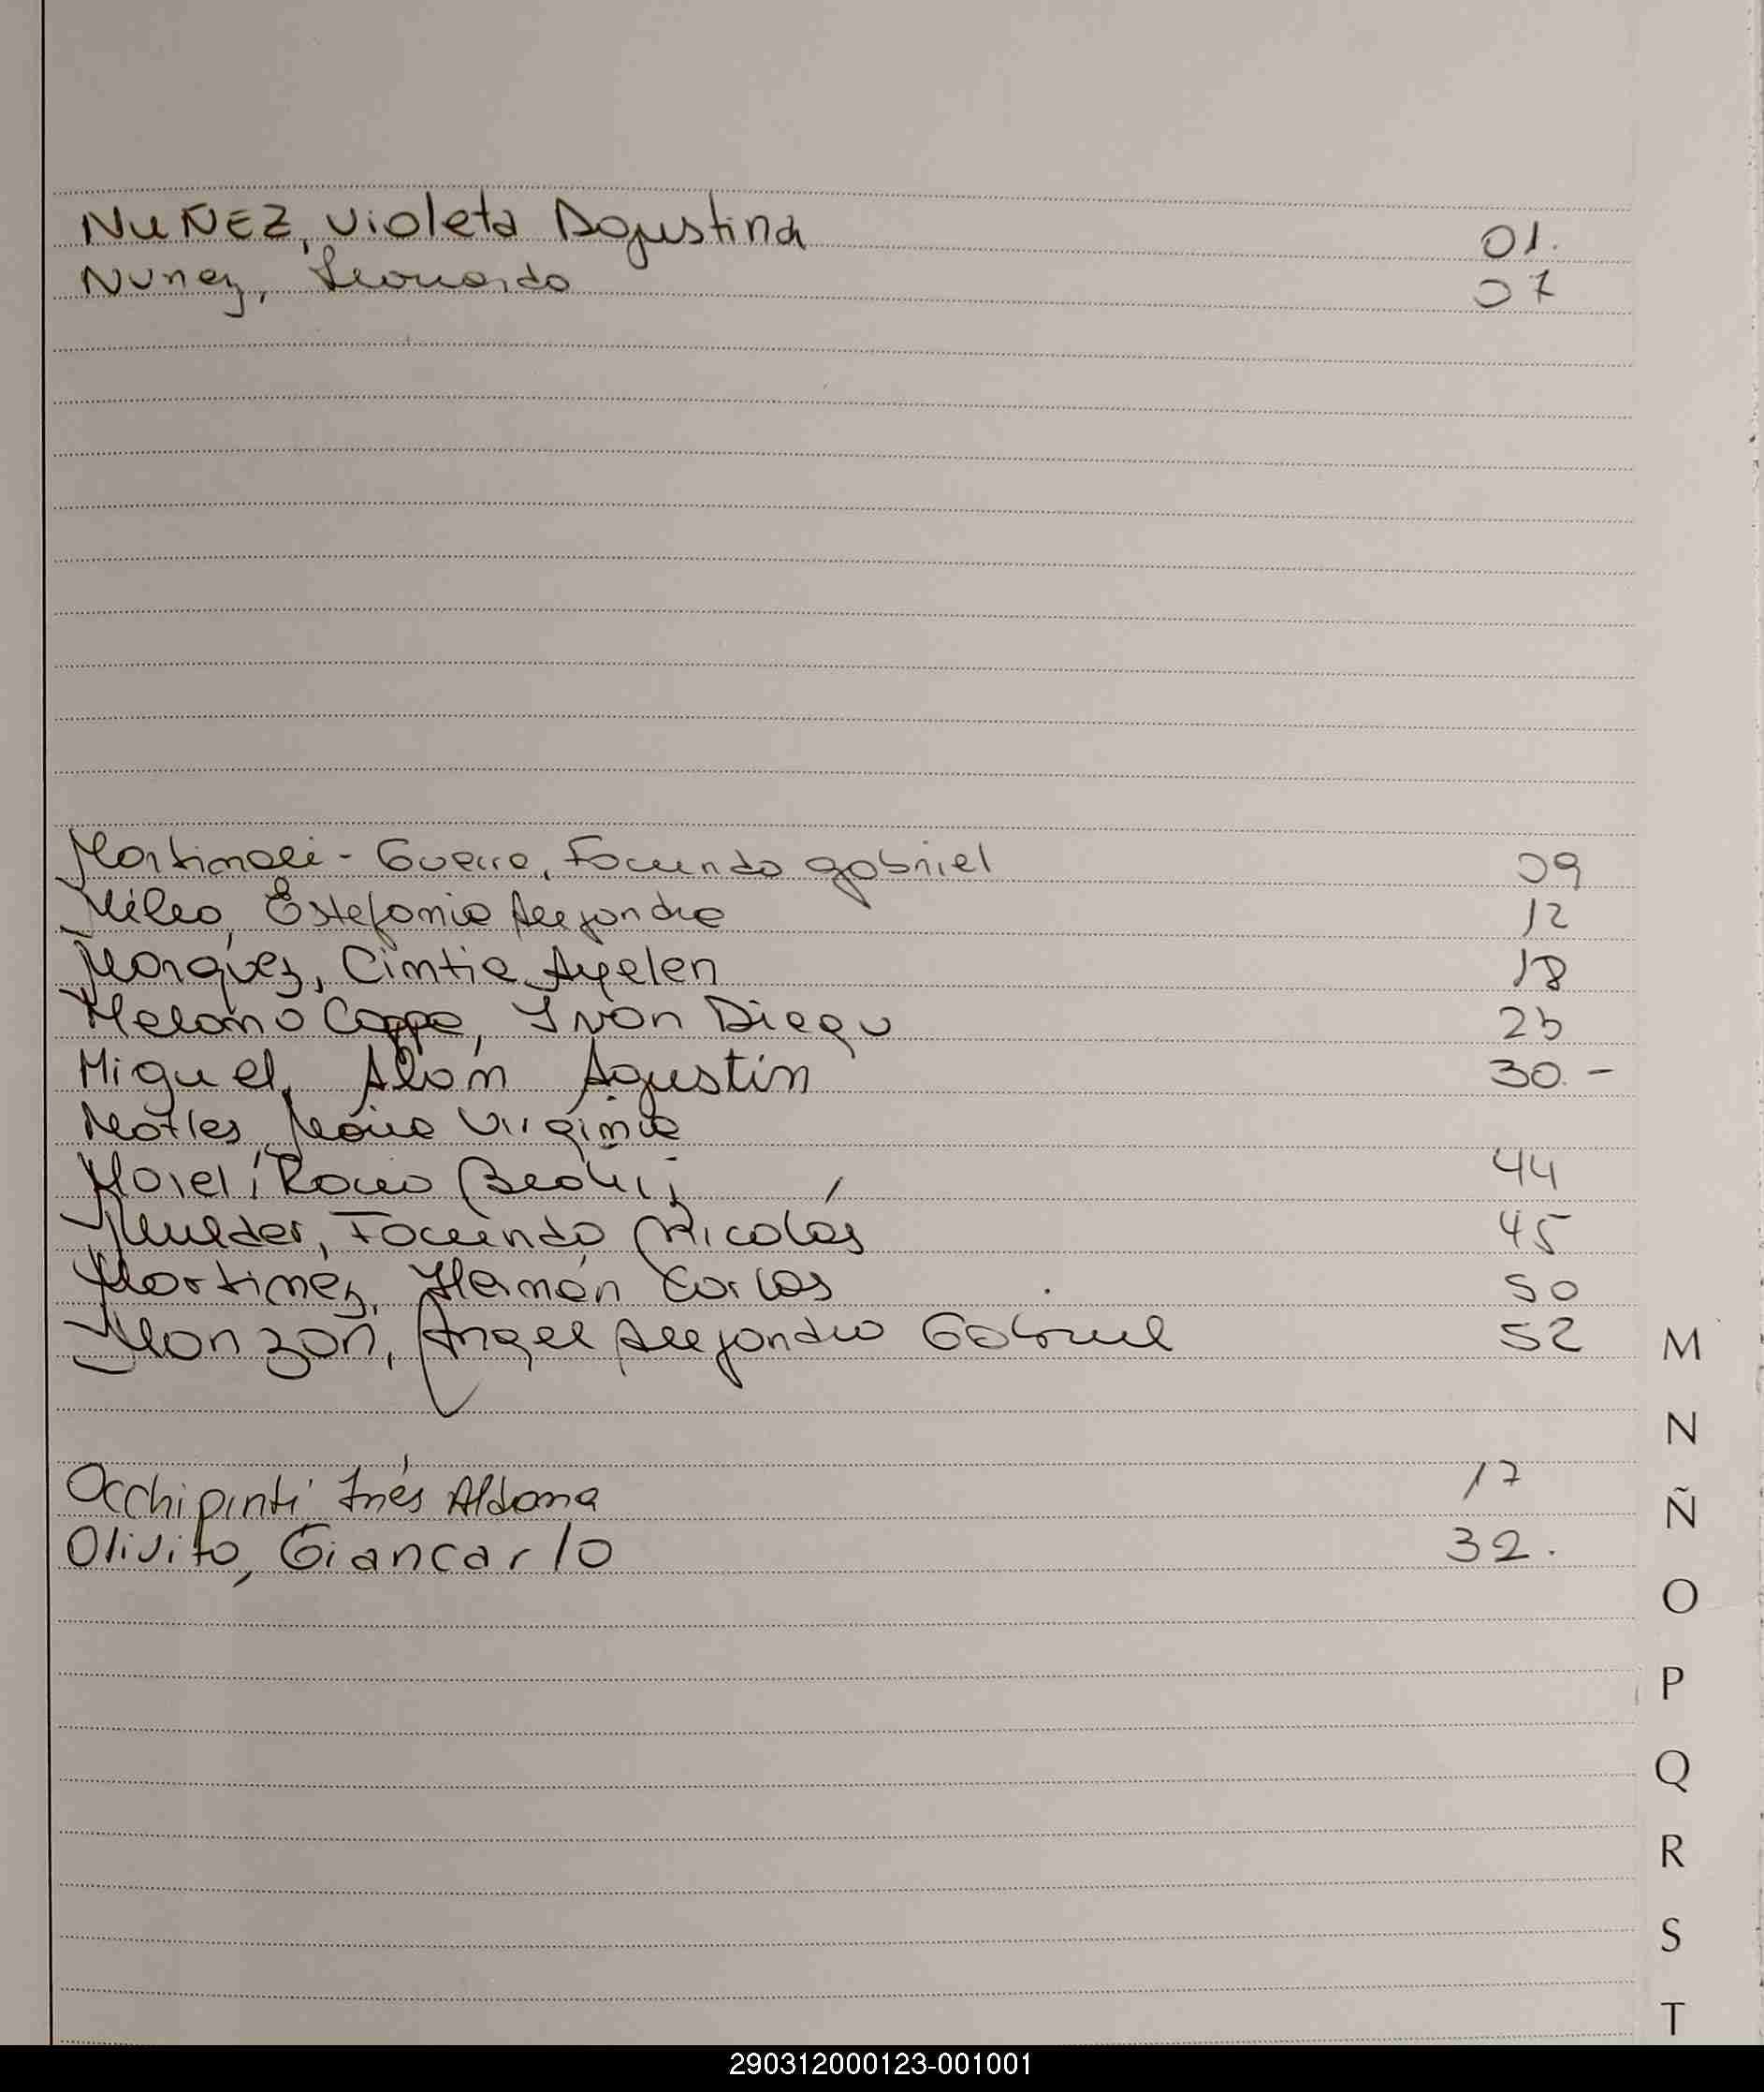 NUÑEZ, Violeta Agustina 01.
Nunez, Leonardo 07
Martinoli - Guerra, Facundo gabriel 09
Milko, Estefania Alejandra 12
Marquez, Cintia Ayelen 18
Melano Coppa, Ivan Diego 25
Miguel, Alan Agustín 30. -
Matles, María Virginia
Morel, Rocio 44
Mulder, Facundo Nicolás 45
Martinez, Hernán Carlos 50
Monzon, Angel Alejandro Gabriel 52
M
N
Occhipinti Inés Aldana 17
Ñ
Olivito, Giancarlo 32.
O
P
Q
R
S
T
290312000123-001001